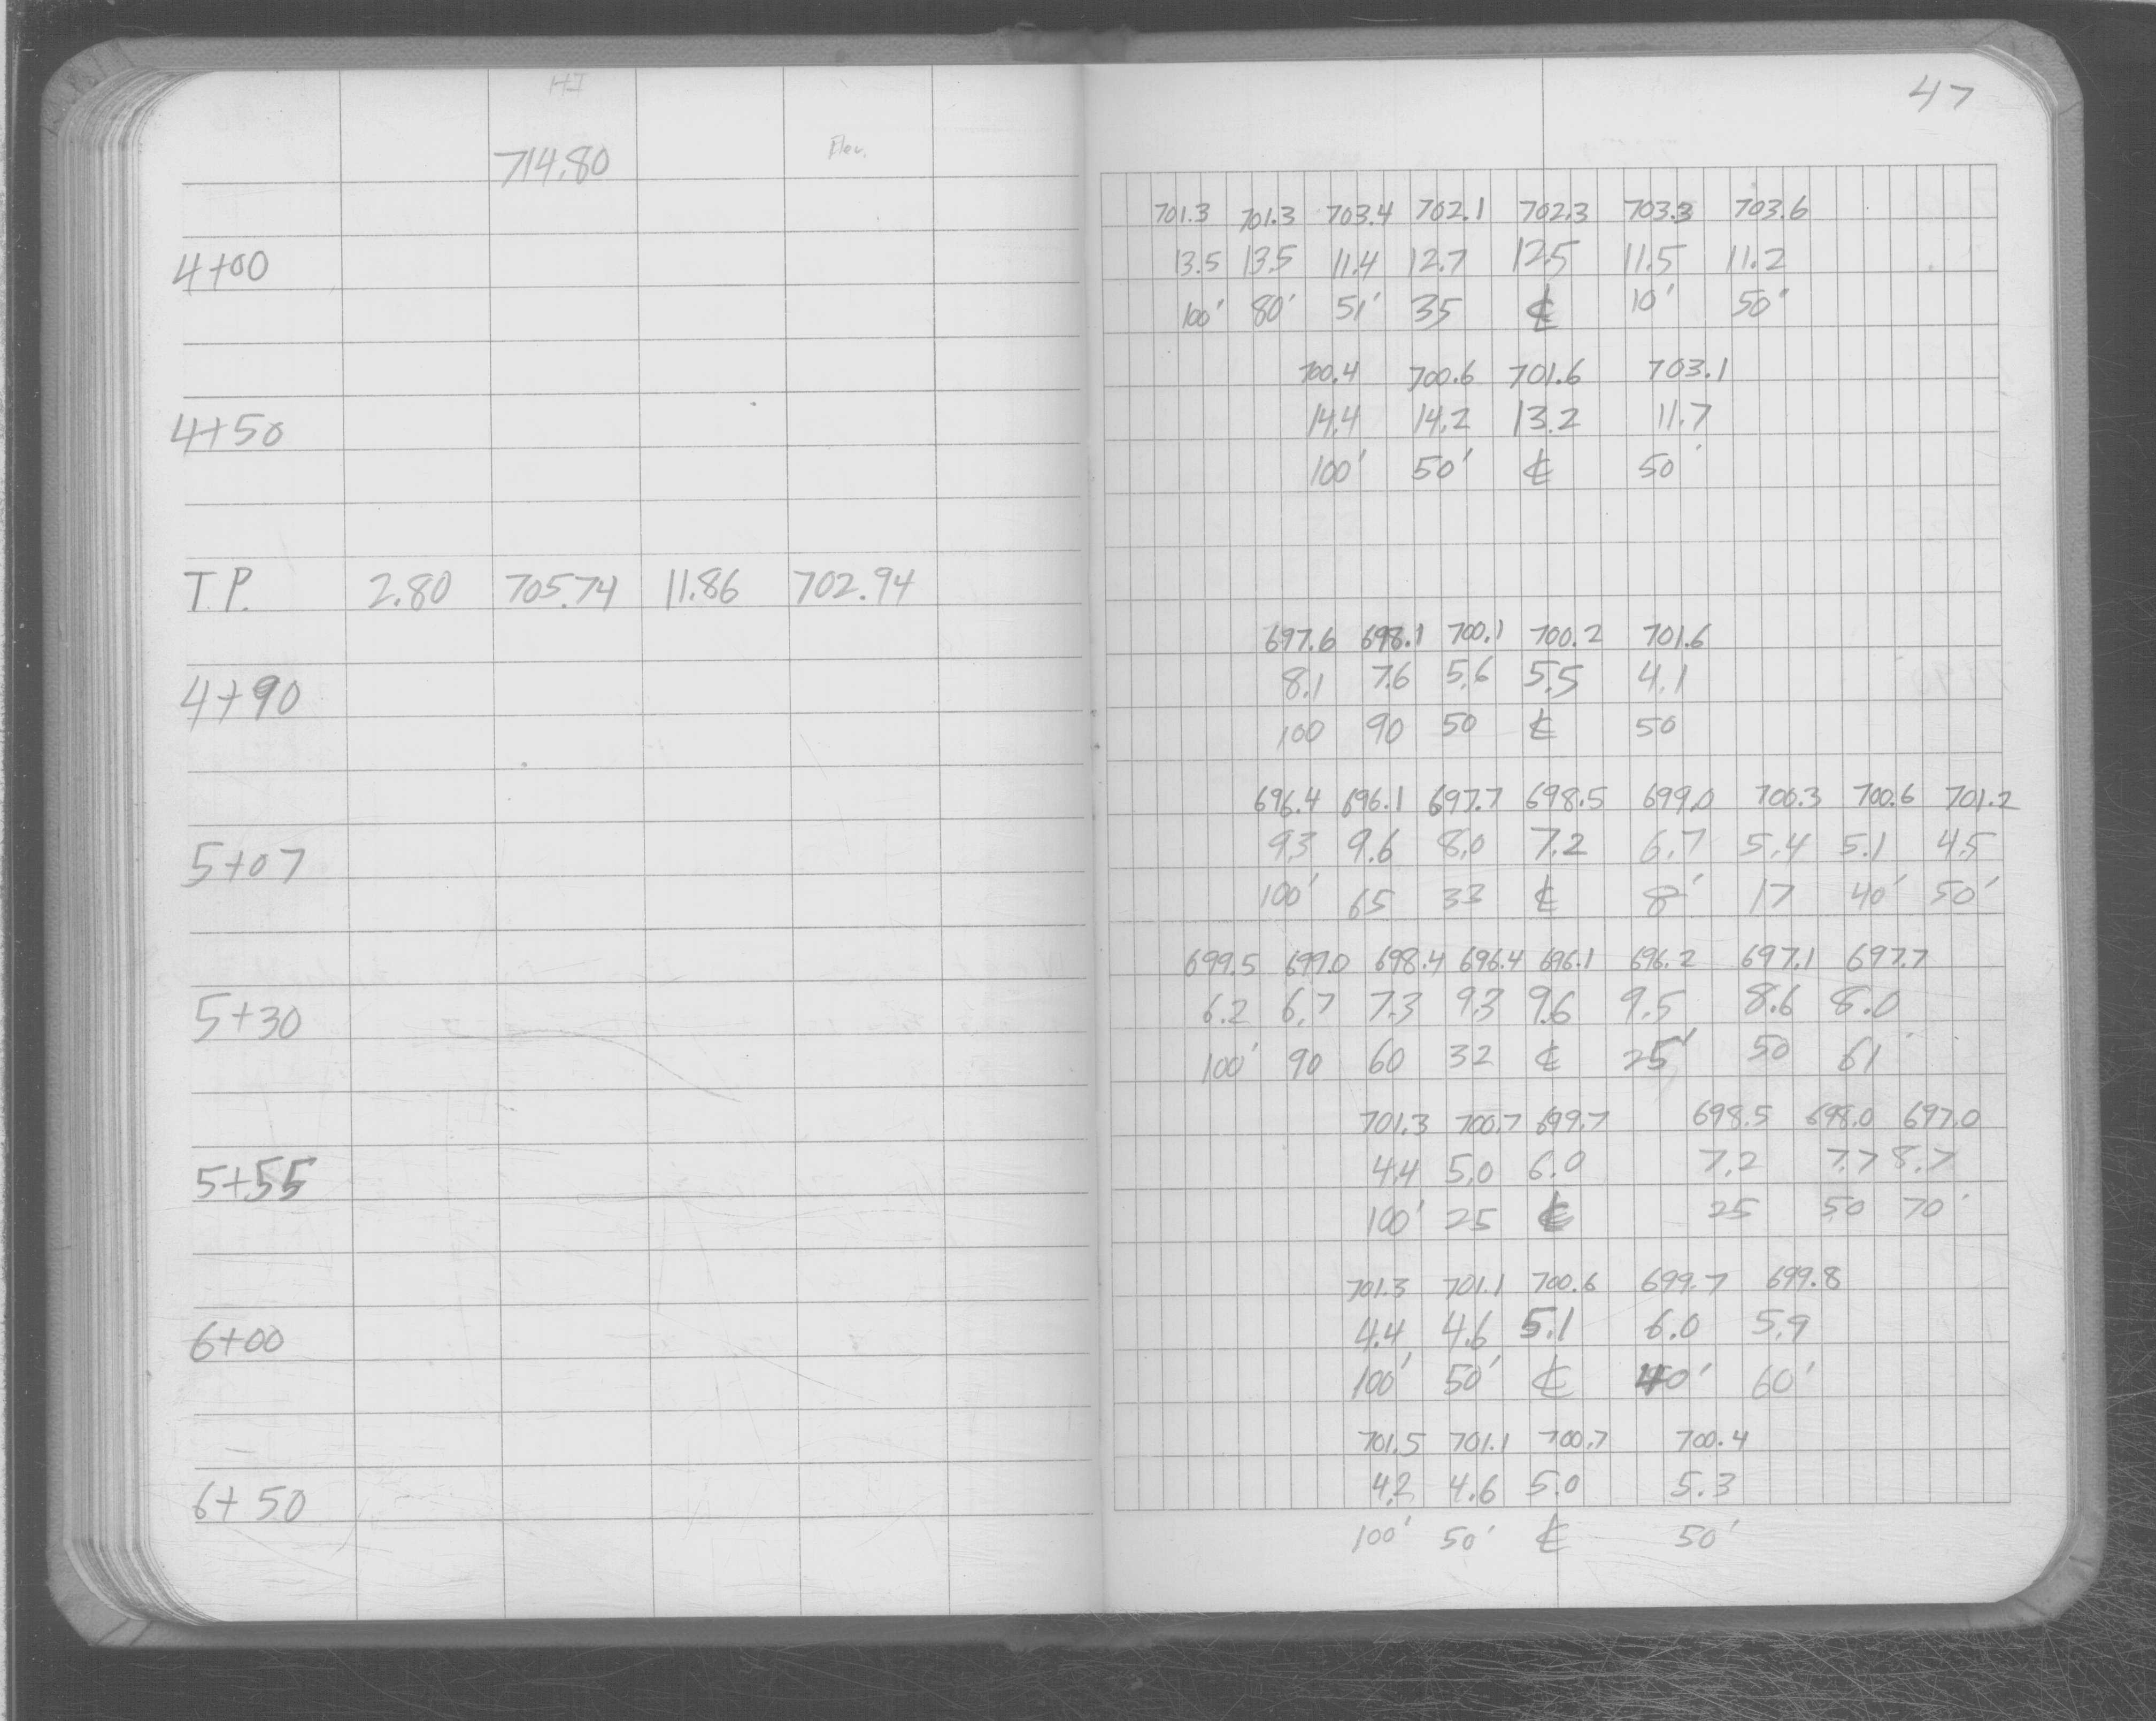 HI
47
714.80
Elev.
701.3 701.3 703.4 702.1 702.3 703.3 703.6
4+00
13.5 13.5 11.4 12.7 12.5 11.5 11.2
100' 80' 51' 35 ℄ 10' 50'
700.4 700.6 701.6 703.1
4+50
14.4 14.2 13.2 11.7
100' 50' ℄ 50'
T.P. 2.80 705.74 11.86 702.94
697.6 698.1 700.1 700.2 701.6
4+90
8.1 7.6 5.6 5.5 4.1
100 90 50 ℄ 50
696.4 696.1 697.7 698.5 699.0 700.3 700.6 701.2
5+07
9.3 9.6 8.0 7.2 6.7 5.4 5.1 4.5
100' 65 33 ℄ 8' 17 40' 50'
699.5 699.0 698.4 696.4 696.1 696.2 697.1 697.7
5+30
6.2 6.7 7.3 9.3 9.6 9.5 8.6 8.0
100' 90 60 32 ℄ 25' 50 61'
701.3 700.7 699.7 698.5 698.0 697.0
5+55
4.4 5.0 6.0 7.2 7.7 8.7
100' 25 ℄ 25 50 70'
701.3 701.1 700.6 699.7 699.8
6+00
4.4 4.6 5.1 6.0 5.9
100' 50' ℄ 40' 60'
701.5 701.1 700.7 700.4
6+50
4.2 4.6 5.0 5.3
100' 50' ℄ 50'